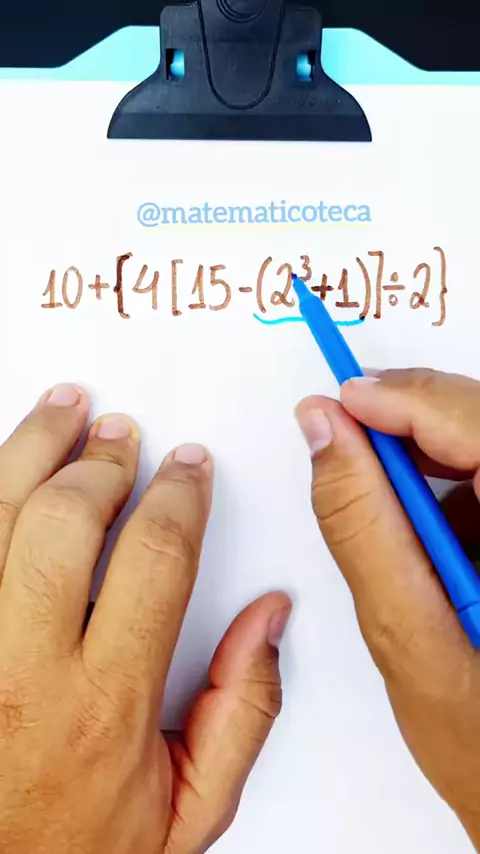 @matematicoteca
10+{4[15-(2³+1)]÷2}